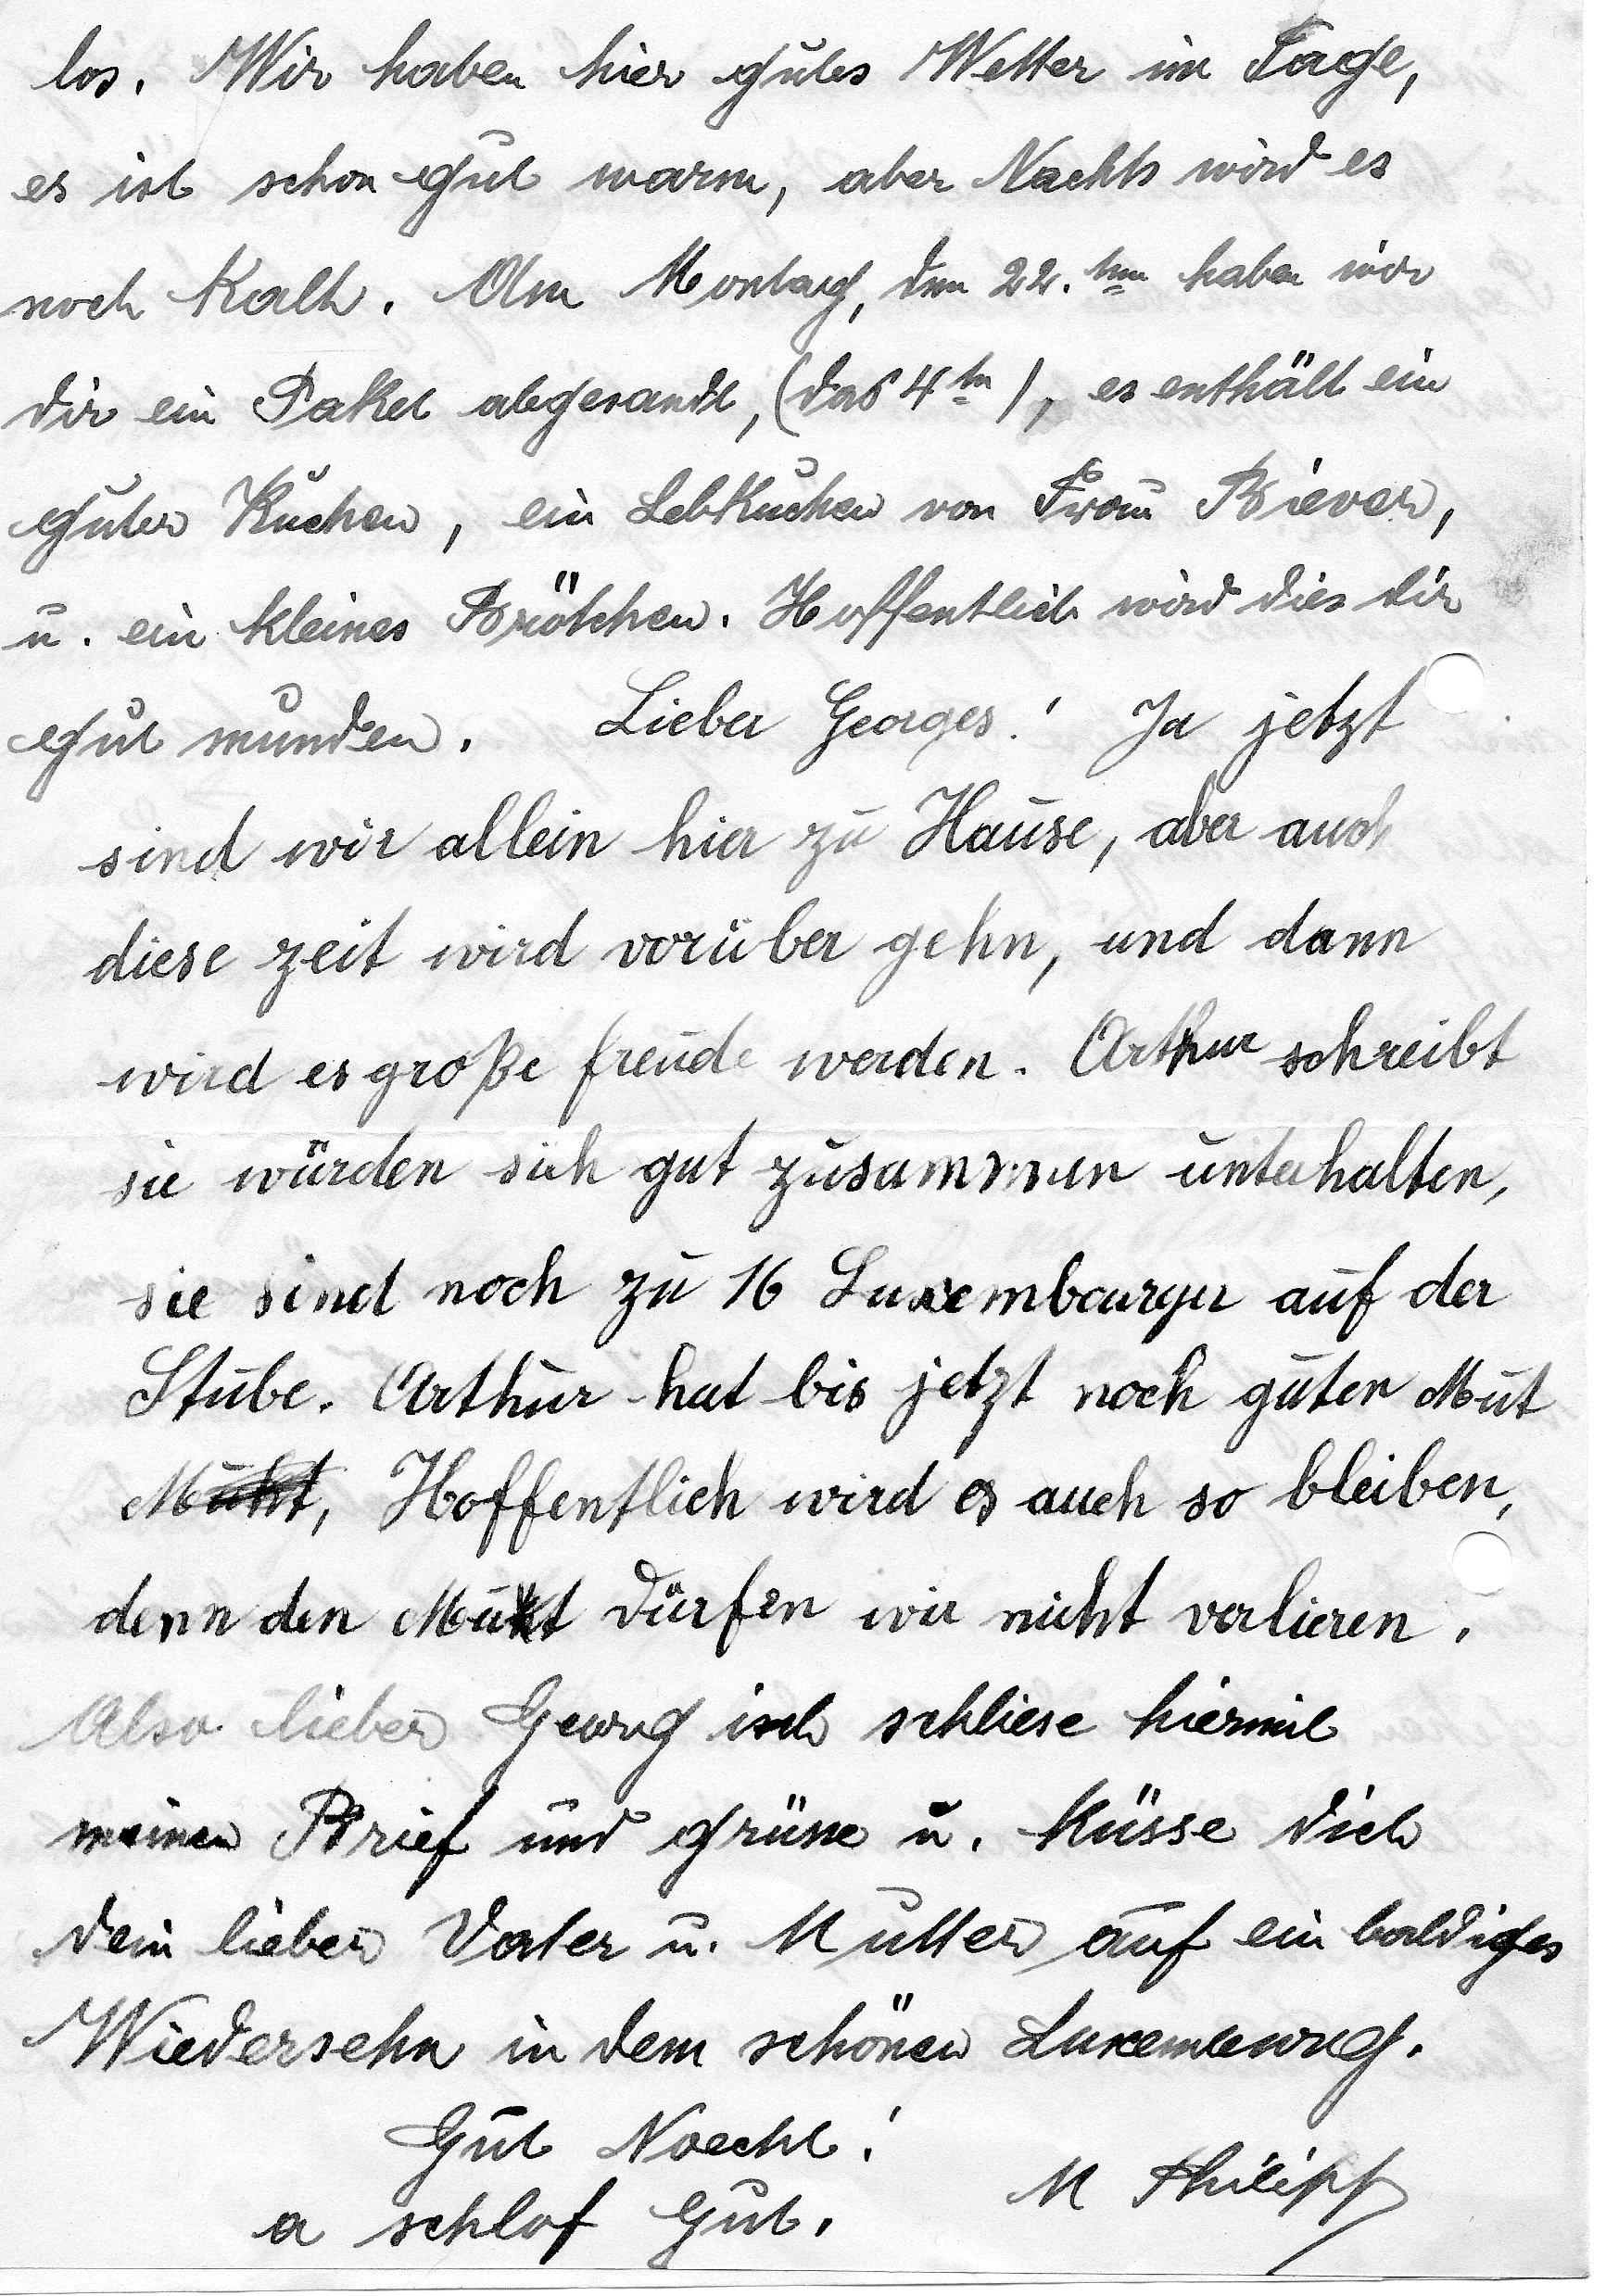 los. Wir haben hier gutes Wetter im Tage,
es ist schon gut warm, aber Nachts wird es
noch Kalt. Am Montag, den 22.ten haben wir
dir ein Paket abgesandt, (das 4te), es enthält ein
guter Kuchen, ein Lebkuchen von Frau Biever,
u. ein kleines Brötchen. Hoffentlich wird dies dir
gut munden. Lieber Georges! Ja jetzt
sind wir allein hier zu Hause, aber auch
diese zeit wird vorüber gehn, und dann
wird es große freude werden. Arthur schreibt
sie würden sich gut zusammen unterhalten,
sie sind noch zu 16 Luxembourger auf der
Stube. Arthur hat bis jetzt noch guten Mut
Hoffentlich wird es auch so bleiben,
denn den Mut dürfen wir nicht verlieren.
Also lieber Georg ich schliese hiermit
meinen Brief und grüsse u. Küsse dich
dein lieber Vater u. Mutter auf ein baldiges
Wiedersehn in dem schönen Luxemburg.
Gut Naecht!
a schlof Gut.
M Philipp